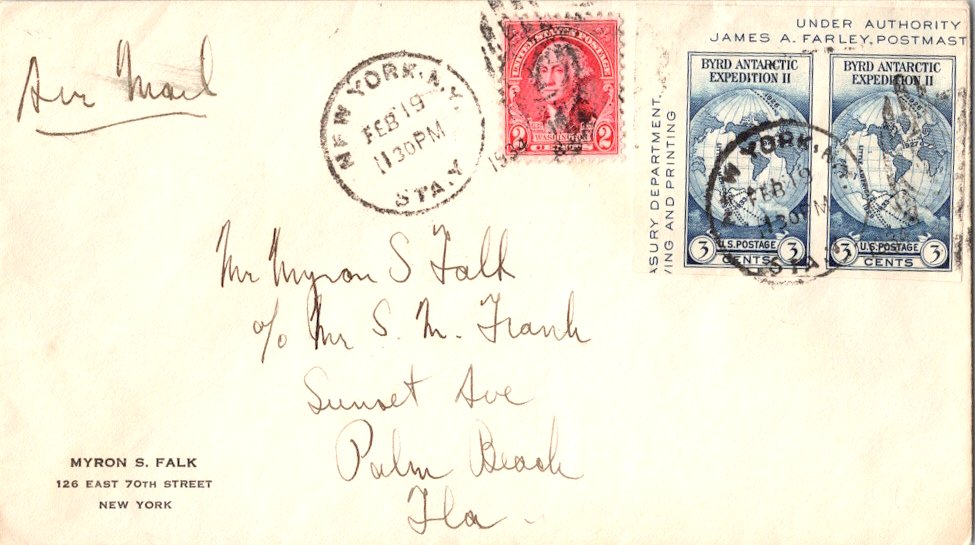 Air Mail
NEW YORK, N.Y.
FEB 19
11 30 PM
STA. Y
1934
UNITED STATES POSTAGE
2 WASHINGTON 2
UNDER AUTHORITY
JAMES A. FARLEY, POSTMAST
ASURY DEPARTMENT,
VING AND PRINTING
BYRD ANTARCTIC
EXPEDITION II
U.S. POSTAGE
3 CENTS 3
BYRD ANTARCTIC
EXPEDITION II
U.S. POSTAGE
3 CENTS 3
W YORK, N.Y.
FEB 19
11 30 PM
STA
Mr Myron S Falk
c/o Mr S. M. Frank
Sunset Ave
Palm Beach
Fla.
MYRON S. FALK
126 EAST 70TH STREET
NEW YORK